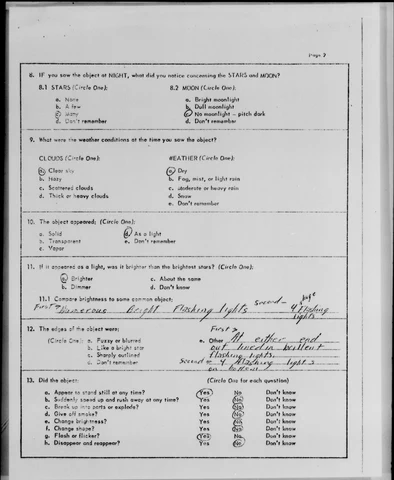 Page 2
8. IF you saw the object at NIGHT, what did you notice concerning the STARS and MOON?
8.1 STARS (Circle One): 8.2 MOON (Circle One):
a. None a. Bright moonlight
b. A few b. Dull moonlight
c. Many c. No moonlight – pitch dark
d. Don't remember d. Don't remember
9. What were the weather conditions at the time you saw the object?
CLOUDS (Circle One): WEATHER (Circle One):
a. Clear sky a. Dry
b. Hazy b. Fog, mist, or light rain
c. Scattered clouds c. Moderate or heavy rain
d. Thick or heavy clouds d. Snow
e. Don't remember
10. The object appeared: (Circle One):
a. Solid d. As a light
b. Transparent e. Don't remember
c. Vapor
11. If it appeared as a light, was it brighter than the brightest stars? (Circle One):
a. Brighter c. About the same
b. Dimmer d. Don't know
11.1 Compare brightness to some common object:
First Numerous Bright Flashing lights Second – 4 Flashing lights
12. The edges of the object were:
(Circle One): a. Fuzzy or blurred e. Other First At either end
b. Like a bright star out lined in brillent
c. Sharply outlined flashing lights.
d. Don't remember Second 4 flashing lights
on bottom
13. Did the object: (Circle One for each question)
a. Appear to stand still at any time? Yes No Don't know
b. Suddenly speed up and rush away at any time? Yes No Don't know
c. Break up into parts or explode? Yes No Don't know
d. Give off smoke? Yes No Don't know
e. Change brightness? Yes No Don't know
f. Change shape? Yes No Don't know
g. Flash or flicker? Yes No Don't know
h. Disappear and reappear? Yes No Don't know